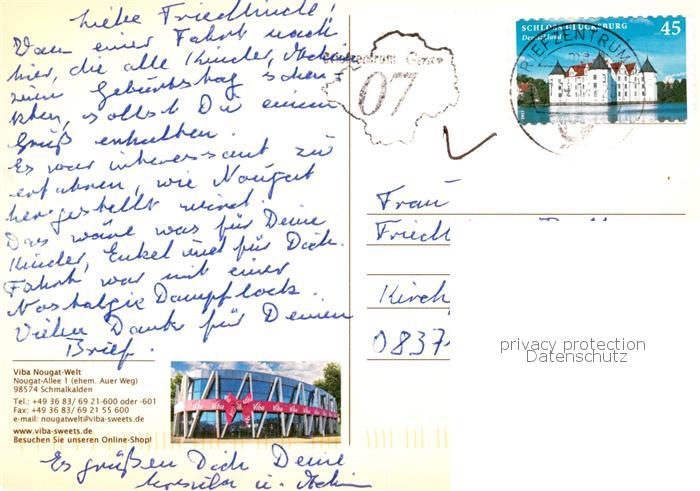 Liebe Friedlinde!
Von einer Fahrt nach
hier, die alle Kinder, Achim
zum Geburtstag schen-
kten, sollst Du einen
Gruß erhalten.
Es war interessant zu
erfahren, wie Nougat
hergestellt wird.
Das wäre was für Deine
Kinder, Enkel und für Dich.
Fahrt war mit einer
Nostalgie Dampflock.
Vielen Dank für Deinen
Brief.
Viba Nougat-Welt
Nougat-Allee 1 (ehem. Auer Weg)
98574 Schmalkalden
Tel.: +49 36 83/ 69 21-600 oder -601
Fax: +49 36 83/ 69 21 55 600
e-mail: nougatwelt@viba-sweets.de
www.viba-sweets.de
Besuchen Sie unseren Online-Shop!
Viba
Es grüßen Dich Deine
u. Achim
07
BRIEFZENTRUM
SCHLOSS GLÜCKSBURG 45
Deutschland
Frau
Friedl
Kirch
0837
privacy protection
Datenschutz